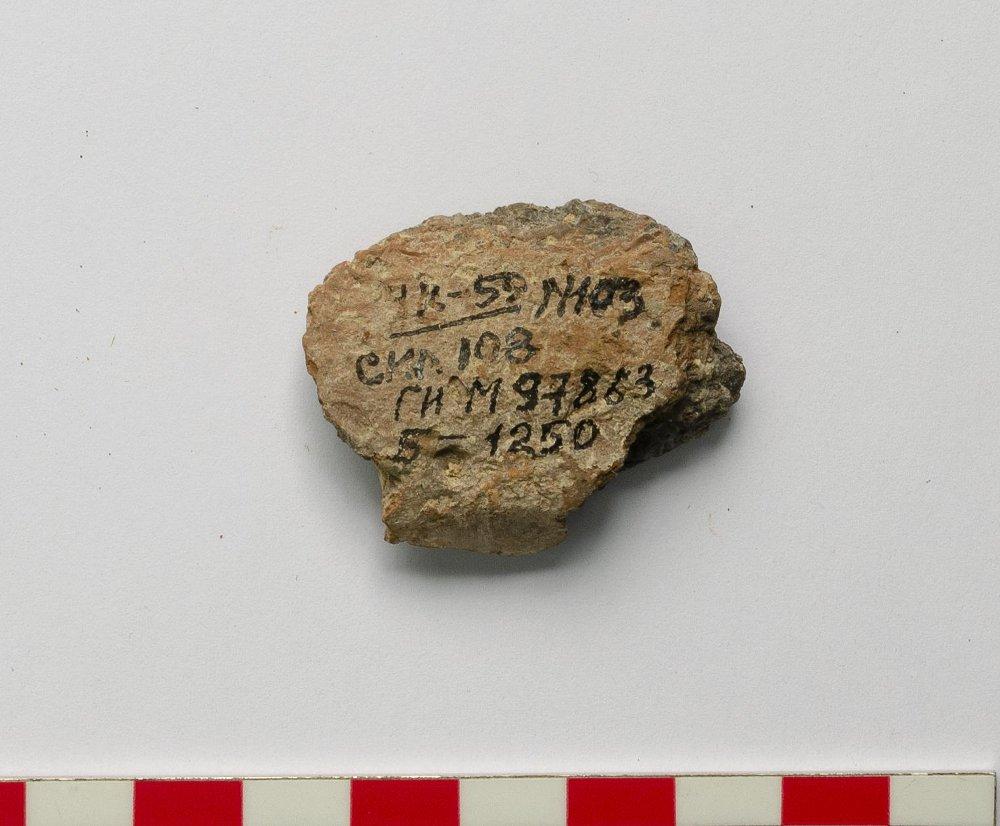 ЧК-59 №103
СКЛ. 108
ГИМ 97863
Б-1250